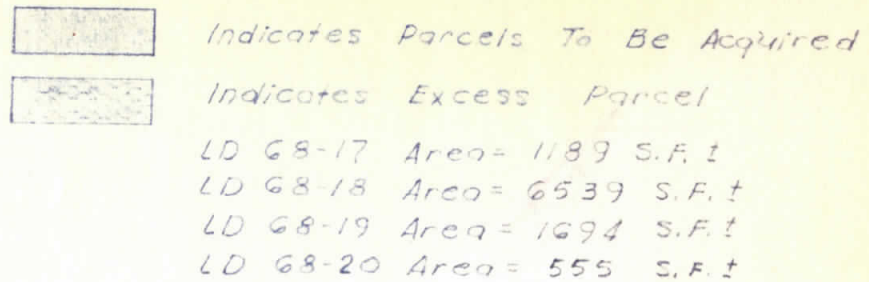 Indicates Parcels To Be Acquired
Indicates Excess Parcel
LD 68-17 Area= 1189 S.F. ±
LD 68-18 Area= 6539 S.F. ±
LD 68-19 Area= 1694 S.F. ±
LD 68-20 Area= 555 S.F. ±